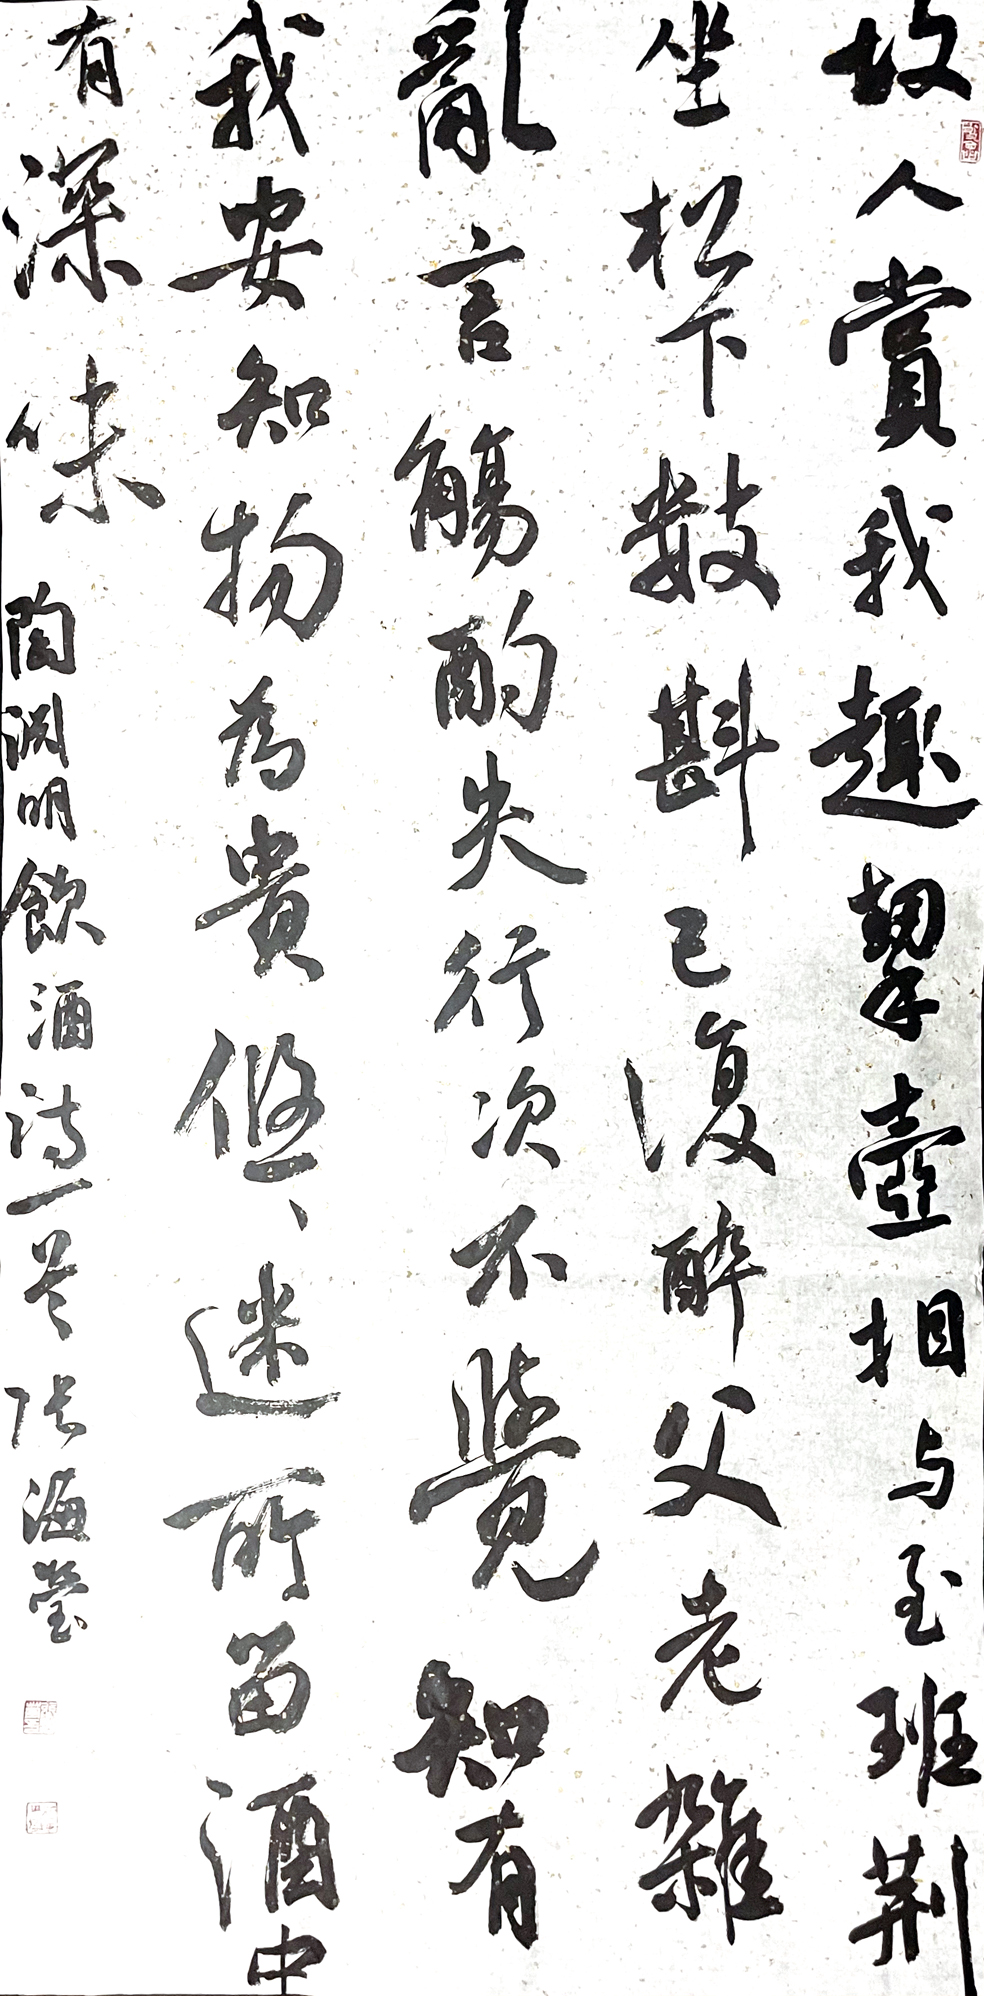 故人賞我趣挈壺相与至班荆
坐松下數斟已復醉父老雜
亂言觴酌失行次不覺知有
我安知物為貴悠、迷所留酒中
有深味 陶淵明飲酒詩一首 张海瑩